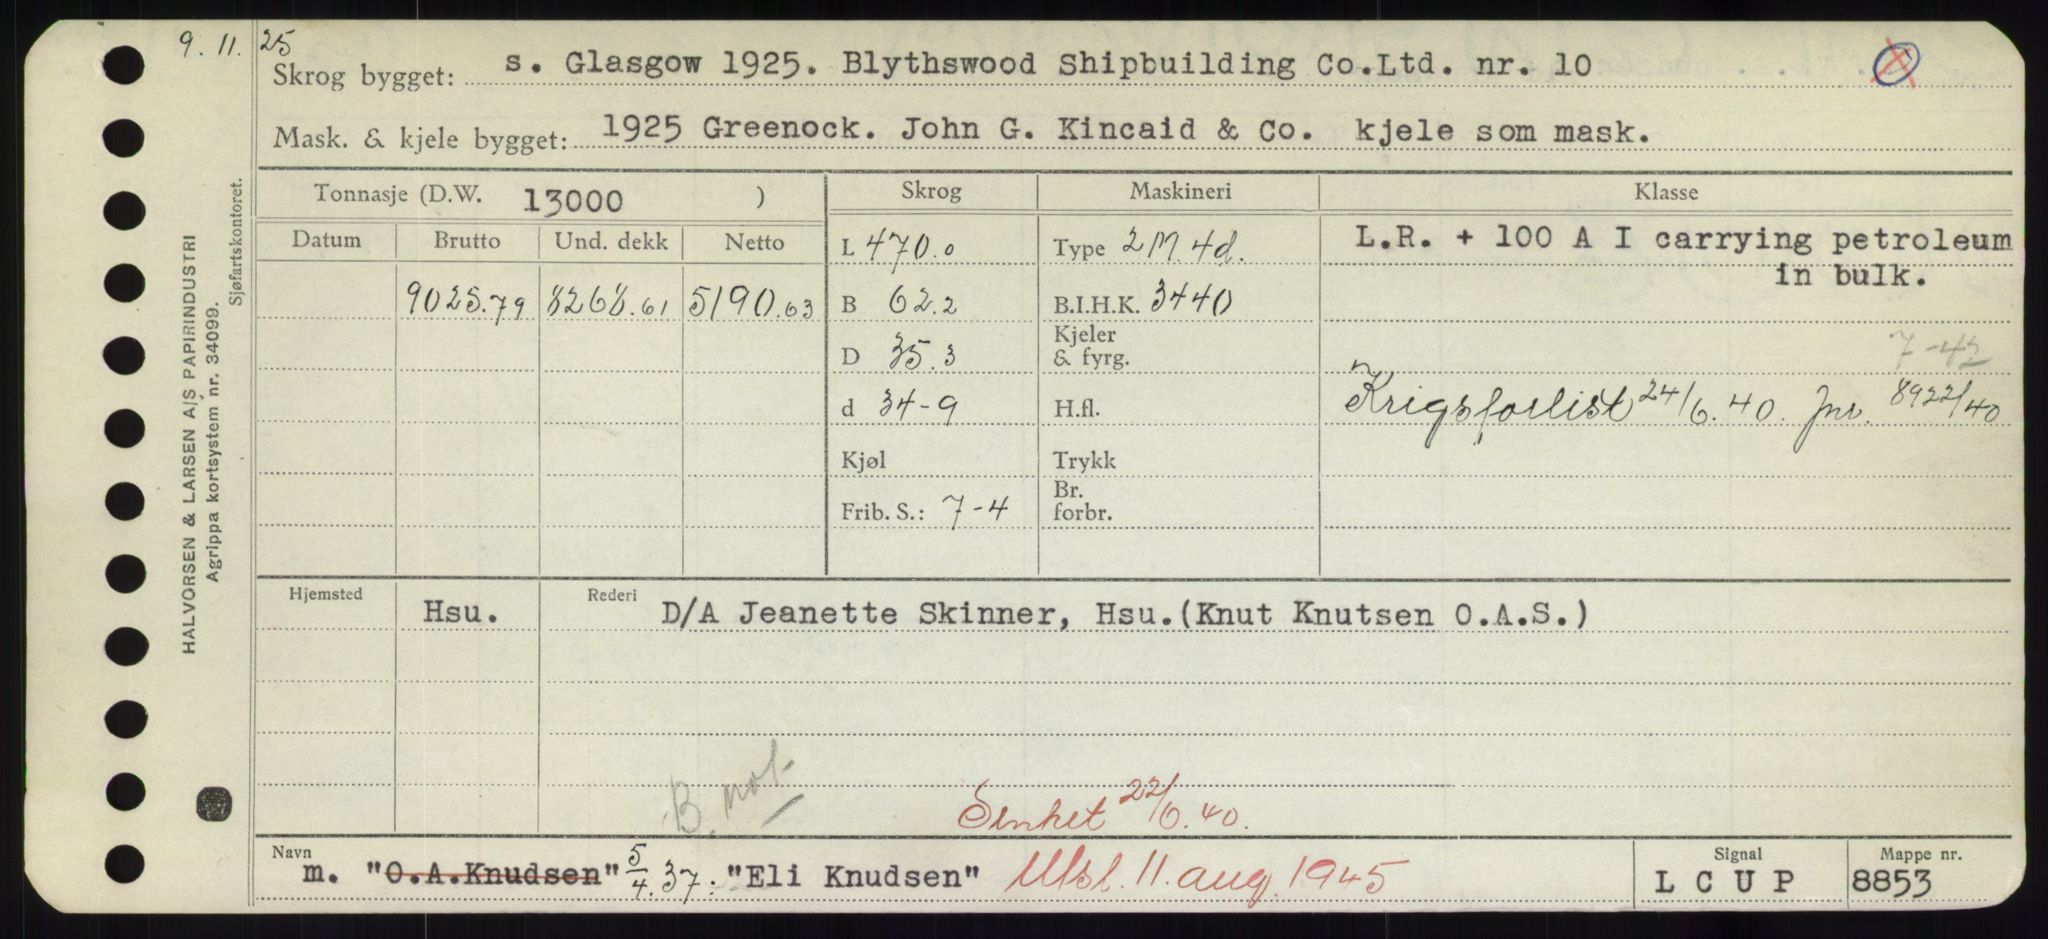 9. 11. 25
Skrog bygget: s. Glasgow 1925. Blythswood Shipbuilding Co.Ltd. nr. 10
Mask. & kjele bygget: 1925 Greenock. John G. Kincaid & Co. kjele som mask.
Tonnasje (D.W. 13000 ) Skrog Maskineri Klasse
Datum Brutto Und. dekk Netto L 470.0 Type 2 M. 4d. L.R. + 100 A I carrying petroleum
in bulk.
9025.79 8268.61 5190.63 B 62.2 B.I.H.K. 3440
D 35.3 Kjeler
& fyrg. 7-42
d 34-9 H.fl. Krigsforlist 24/6.40. Jnr. 8922/40
Kjøl Trykk
Frib. S.: 7-4 Br.
forbr.
Hjemsted Hsu. Rederi D/A Jeanette Skinner, Hsu.(Knut Knutsen O.A.S.)
B. not
Senket 22/6.40.
Navn m. "O.A.Knudsen" 5/4.37: "Eli Knudsen" Utsl. 11. aug. 1945 Signal L C U P Mappe nr. 8853
HALVORSEN & LARSEN A/S PAPIRINDUSTRI
Agrippa kortsystem nr. 34099.
Sjøfartskontoret.